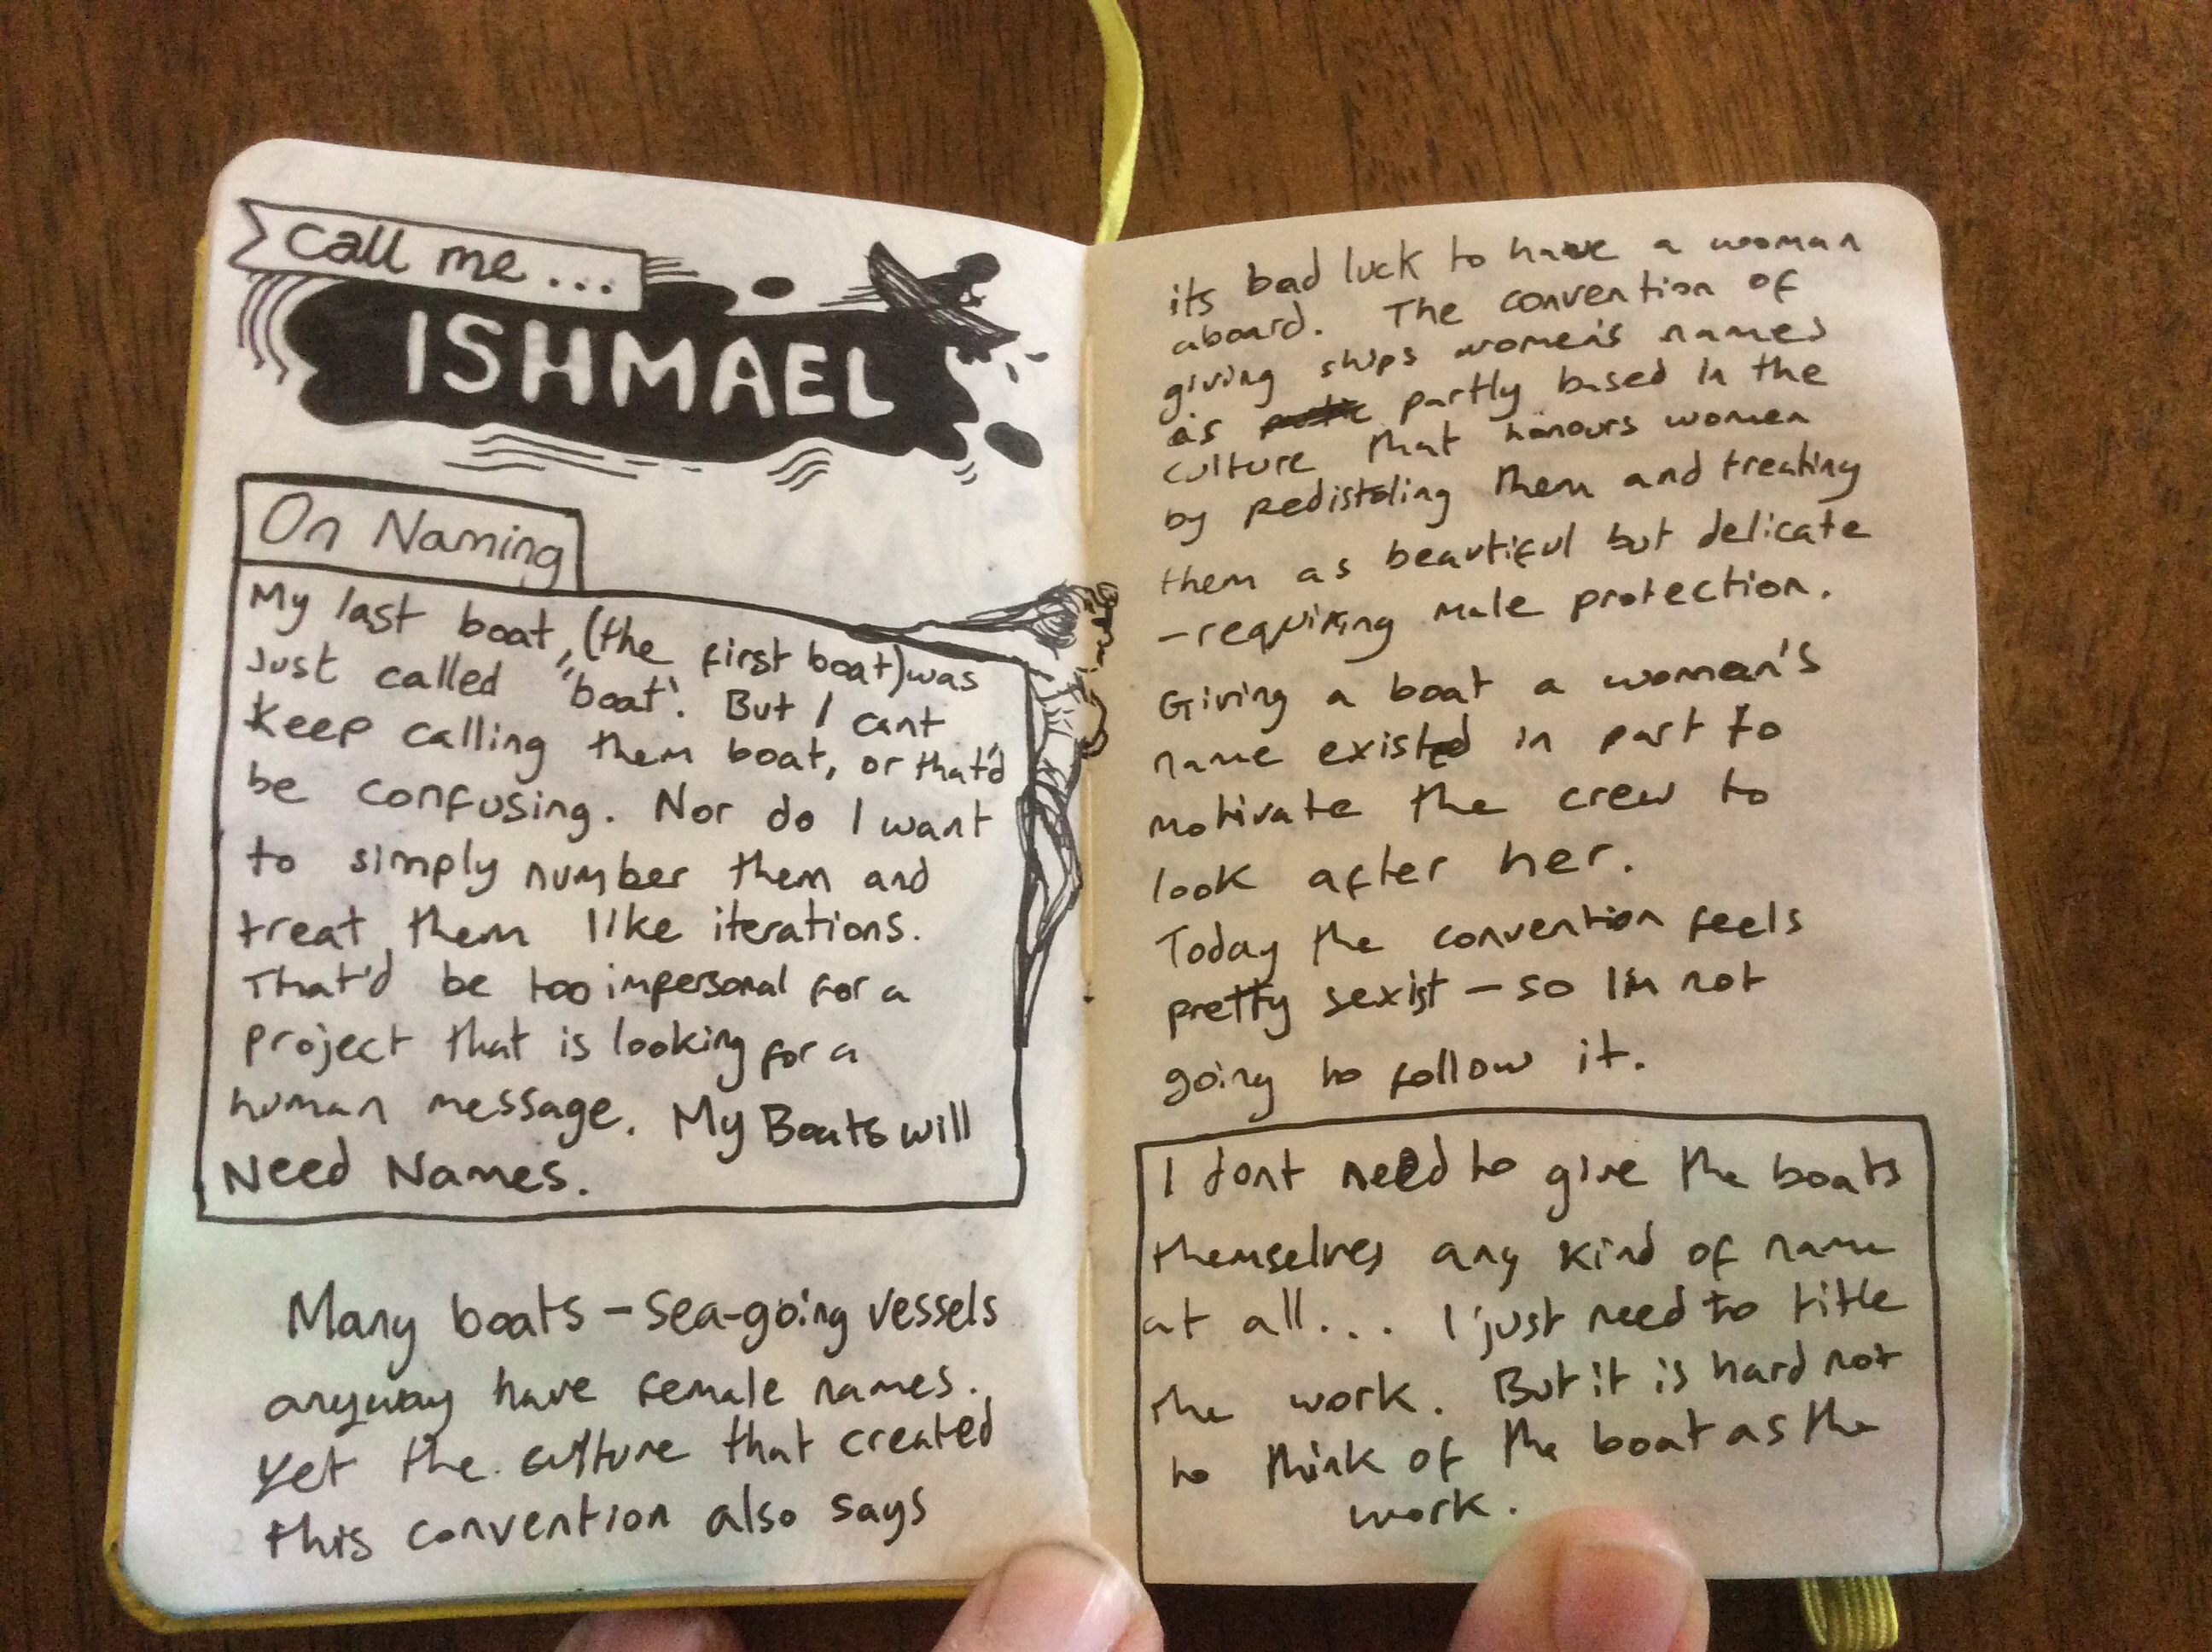 call me...
ISHMAEL
On Naming
My last boat, (the first boat) was
Just called "boat". But I cant
keep calling them boat, or that'd
be confusing. Nor do I want
to simply number them and
treat them like iterations.
That'd be too impersonal for a
project that is looking for a
human message. My Boats will
Need Names.
Many boats - sea-going vessels
anyway have female names.
Yet the culture that created
this convention also says
2
its bad luck to have a woman
aboard. The convention of
giving ships women's names
is partly based in the
culture that honours women
by pedistaling them and treating
them as beautiful but delicate
- requiring male protection.
Giving a boat a woman's
name existed in part to
motivate the crew to
look after her.
Today the convention feels
pretty sexist - so I'm not
going to follow it.
I dont need to give the boats
themselves any kind of name
at all... I just need to title
the work. But it is hard not
to think of the boat as the
work.
3